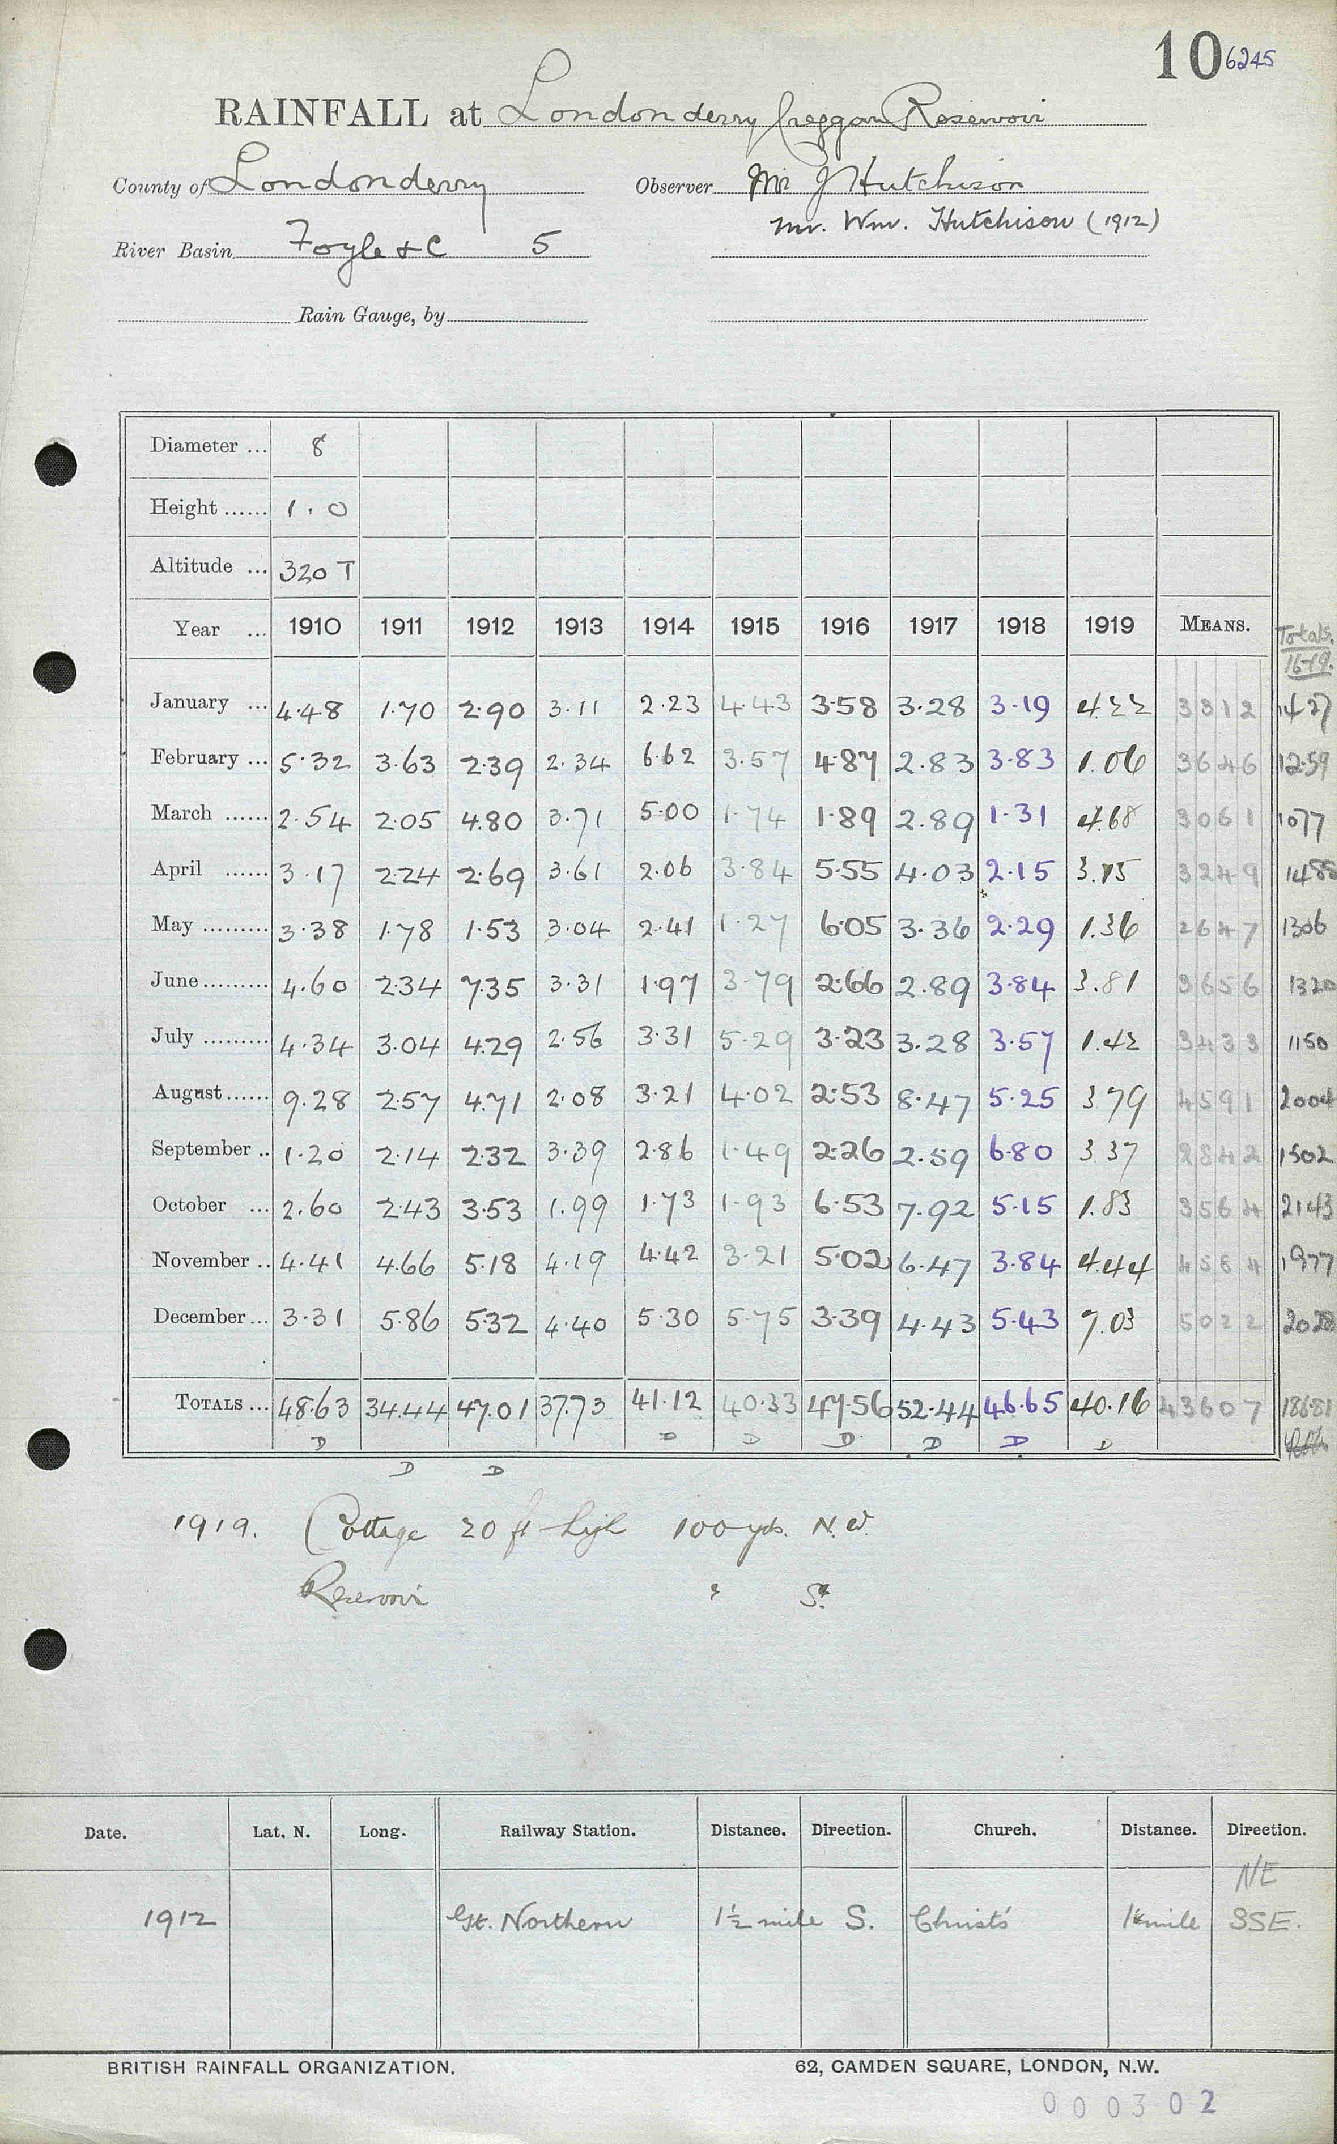 10 6245
RAINFALL at Londonderry Creggan Reservoir
County of Londonderry Observer Mr J Hutchison
Mr. Wm. Hutchison (1912)
River Basin Foyle &c 5
Rain Gauge, by
Diameter ... 8
Height ...... 1.0
Altitude ... 320 T
Year ... 1910 1911 1912 1913 1914 1915 1916 1917 1918 1919 MEANS. Totals. 16-19.
January ... 4.48 1.70 2.90 3.11 2.23 4.43 3.58 3.28 3.19 4.22 3312 1427
February ... 5.32 3.63 2.39 2.34 6.62 3.57 4.87 2.83 3.83 1.06 3646 12.59
March ...... 2.54 2.05 4.80 3.71 5.00 1.74 1.89 2.89 1.31 4.68 3061 1077
April ...... 3.17 2.24 2.69 3.61 2.06 3.84 5.55 4.03 2.15 3.15 3249 1488
May ......... 3.38 1.78 1.53 3.04 2.41 1.27 6.05 3.36 2.29 1.36 2647 1306
June ......... 4.60 2.34 7.35 3.31 1.97 3.79 2.66 2.89 3.84 3.81 3656 1320
July ......... 4.34 3.04 4.29 2.56 3.31 5.29 3.23 3.28 3.57 1.42 3433 1150
August ...... 9.28 2.57 4.71 2.08 3.21 4.02 2.53 8.47 5.25 3.79 4591 2004
September .. 1.20 2.14 2.32 3.39 2.86 1.49 2.26 2.59 6.80 3.37 2842 1502
October ... 2.60 2.43 3.53 1.99 1.73 1.93 6.53 7.92 5.15 1.83 3564 2143
November .. 4.41 4.66 5.18 4.19 4.42 3.21 5.02 6.47 3.84 4.44 4584 1977
December ... 3.31 5.86 5.32 4.40 5.30 5.75 3.39 4.43 5.43 7.03 5022 2028
TOTALS ... 48.63 34.44 47.01 37.73 41.12 40.33 47.56 52.44 46.65 40.16 43607 18681
D D D D D D D
D D
1919. Cottage 20 ft high 100 yds. N.W.
Reservoir " S.
Date. Lat. N. Long. Railway Station. Distance. Direction. Church. Distance. Direction.
NE
1912 Gt. Northern 1½ mile S. Christs 1 mile SSE.
BRITISH RAINFALL ORGANIZATION. 62, CAMDEN SQUARE, LONDON, N.W.
000302